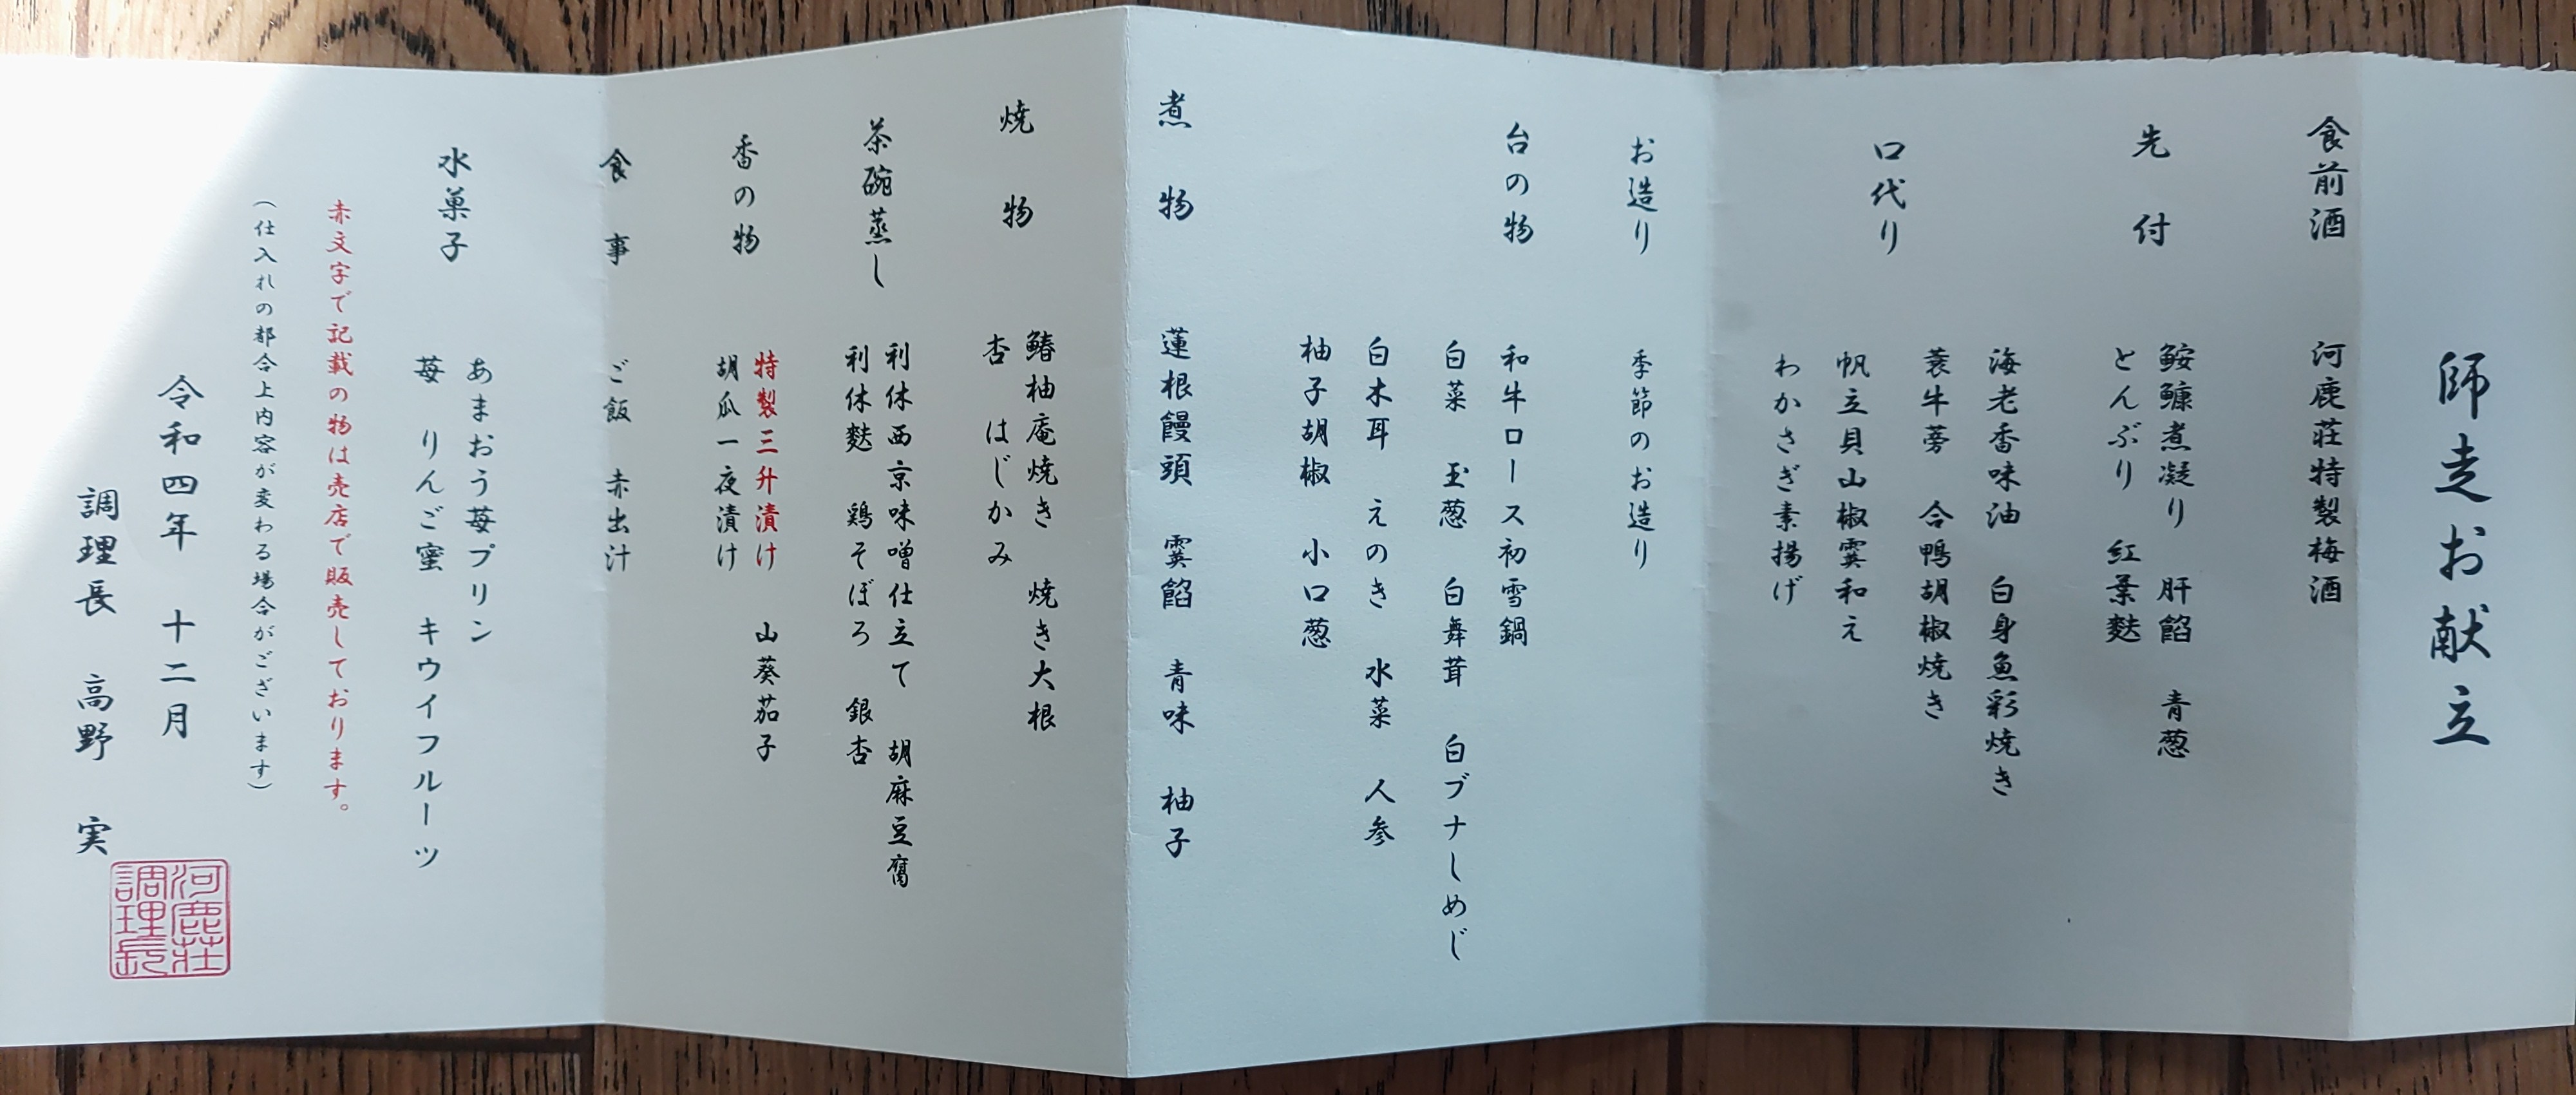 師走お献立
食前酒　河鹿荘特製梅酒
先　付　鮟鱇煮凝り　肝餡　青葱
とんぶり　紅葉麩
口代り　海老香味油　白身魚彩焼き
蓑牛蒡　合鴨胡椒焼き
帆立貝山椒霙和え
わかさぎ素揚げ
お造り　季節のお造り
台の物　和牛ロース初雪鍋
白菜　玉葱　白舞茸　白ブナしめじ
白木耳　えのき　水菜　人参
柚子胡椒　小口葱
煮　物　蓮根饅頭　霙餡　青味　柚子
焼　物　鰆柚庵焼き　焼き大根
杏　はじかみ
茶碗蒸し　利休西京味噌仕立て　胡麻豆腐
利休麩　鶏そぼろ　銀杏
香の物　特製三升漬け　山葵茄子
胡瓜一夜漬け
食　事　ご飯　赤出汁
水菓子　あまおう苺プリン
苺　りんご蜜　キウイフルーツ
赤文字で記載の物は売店で販売しております。
（仕入れの都合上内容が変わる場合がございます）
令和四年　十二月
調理長　高野　実
河鹿荘
調理長